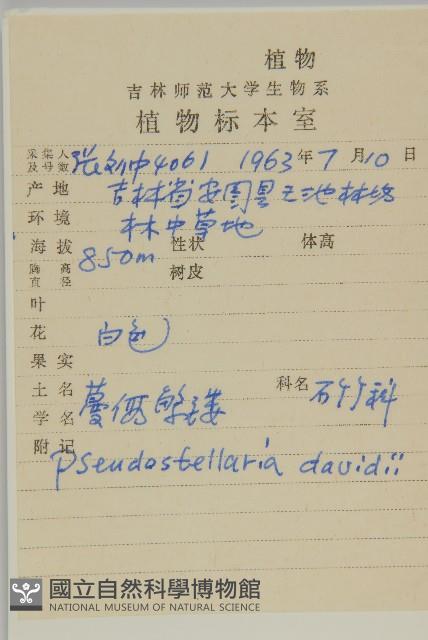 植物
吉林师范大学生物系
植物标本室
采集人及号数 张文仲4061 1963年7月10日
产地 吉林省安图县天池林场
环境 林中草地
海拔 850m 性状 体高
胸高直径 树皮
叶
花 白色
果实
土名 蔓假繁缕 科名 石竹科
学名
附记 Pseudostellaria davidii
國立自然科學博物館
NATIONAL MUSEUM OF NATURAL SCIENCE